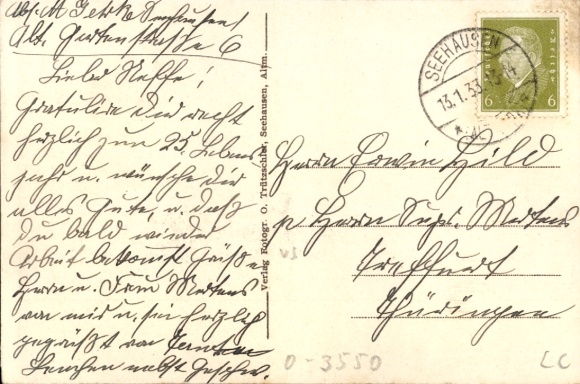 Abs. M. Gerke Seehausen/
Alt. Gartenstraße 6
Lieber Neffe!
Gratuliere Dir recht
herzlich zum 25. Lebens
jahr u. wünsche Dir
alles Gute, u. daß
Du bald wieder
Arbeit bekomst Grüße
Herrn u. Frau Mertens
von mir u. sei herzlich
gegrüßt von
Lenchen nebst Geschw.
Verlag Fotogr. O. Trützschler, Seehausen, Altm.
SEEHAUSEN
13.1.33
6 6
Herrn Erwin Hild
p Herrn Supr. Mertens
Treffurt
Thüringen
0-3550
LC